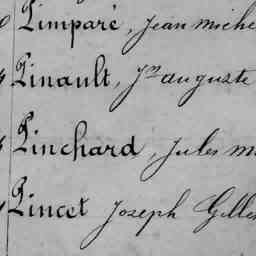 Pimparé, Jean miche
Pinault, Jn auguste
Pinchard, Jules m
Pincet Joseph Gille